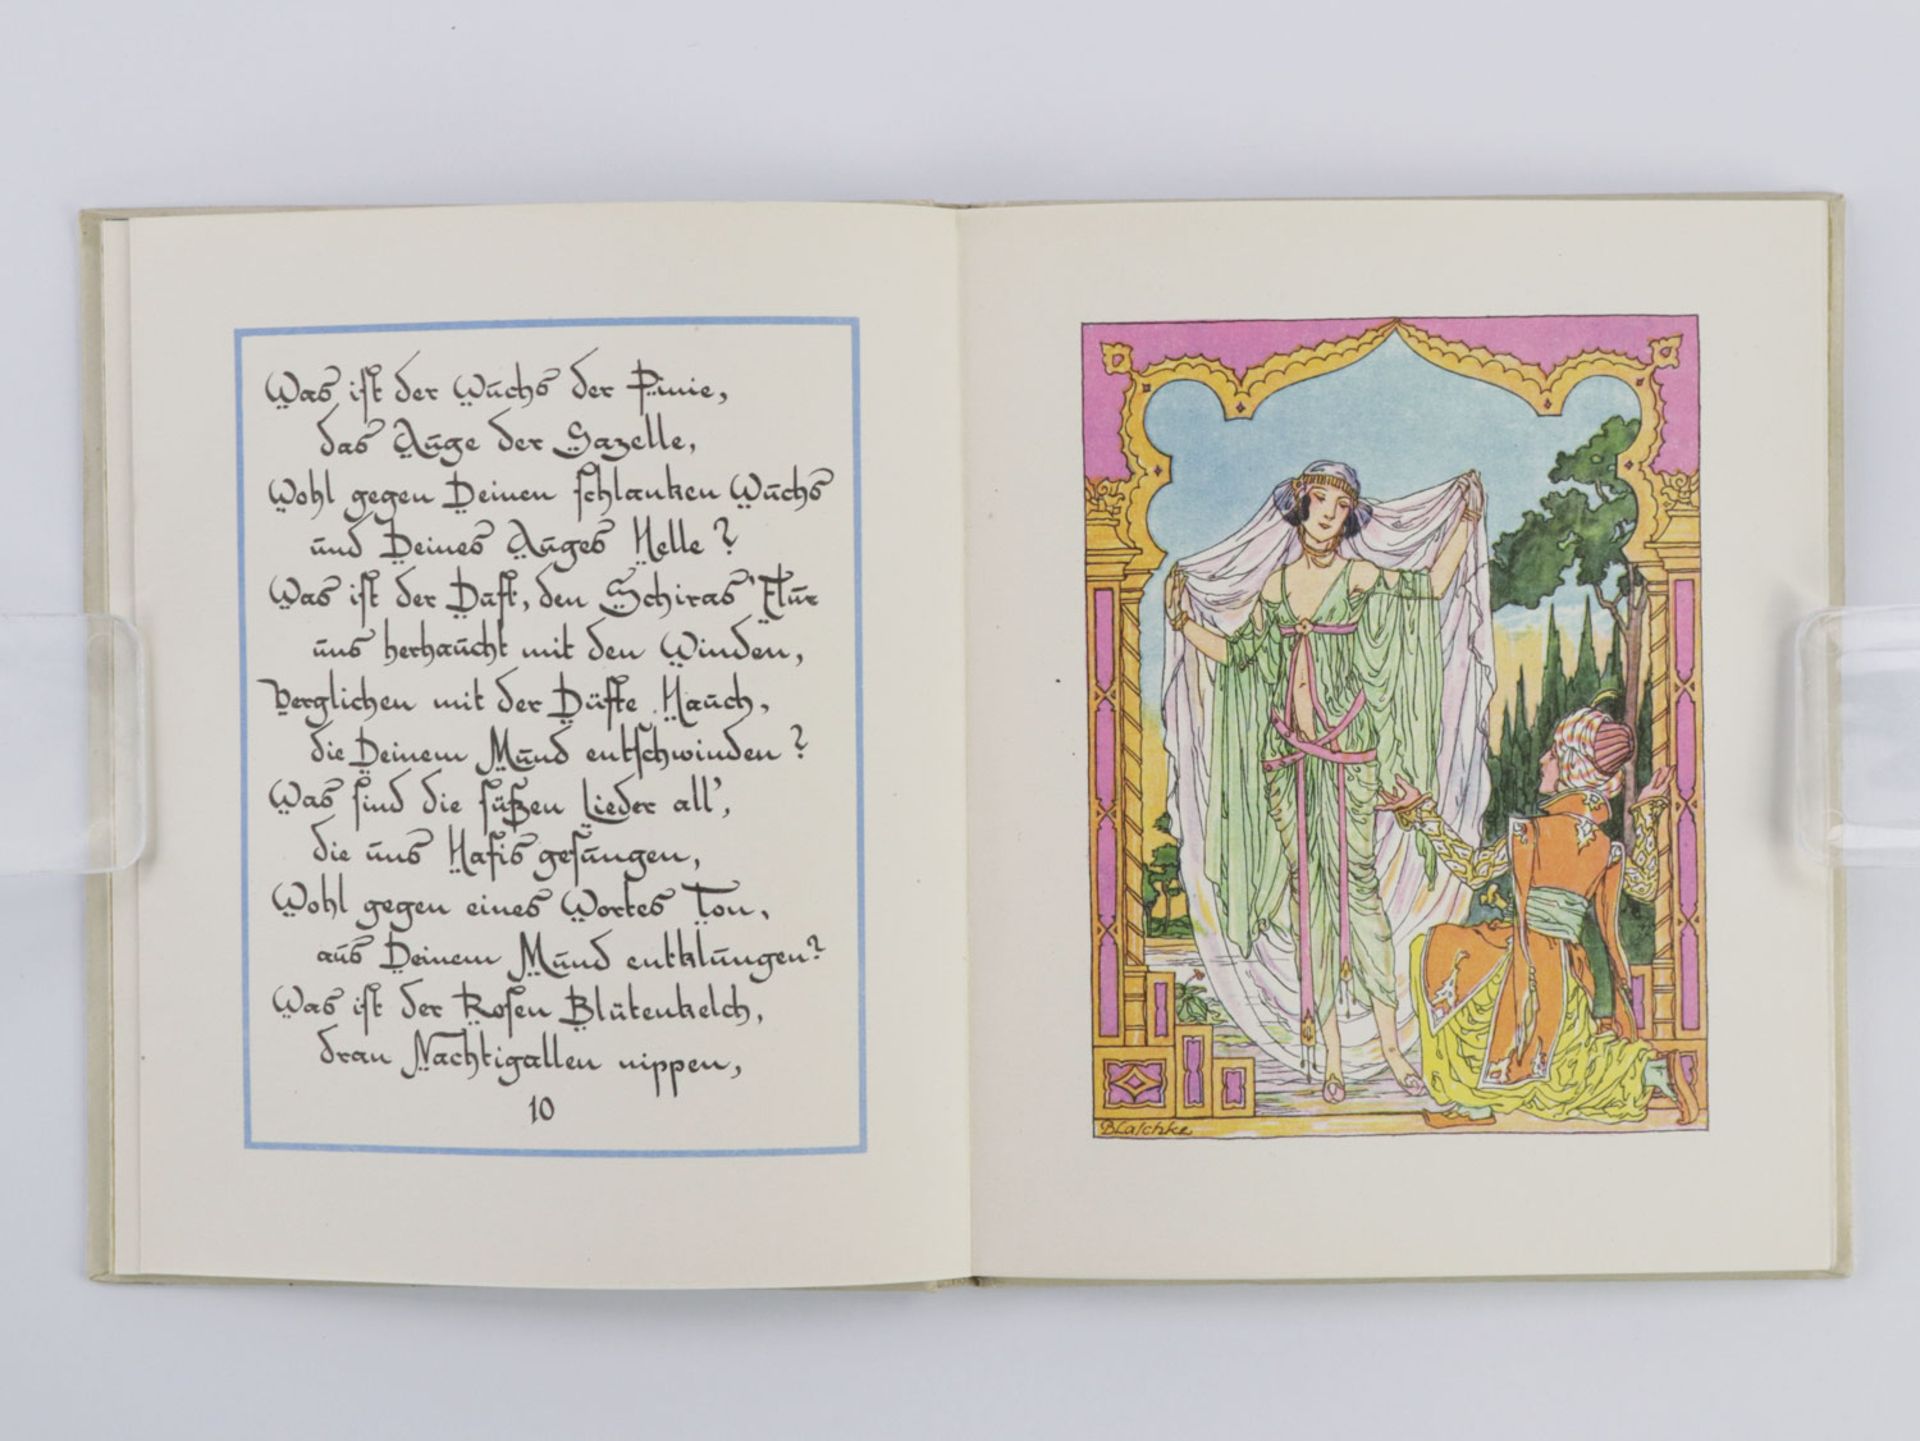 Was ist der Wuchs der Pinie,
das Auge der Gazelle,
Wohl gegen Deinen schlanken Wuchs
und Deines Auges Helle?
Was ist der Duft, den Schiras' Flur
uns herhaucht mit den Winden,
Verglichen mit der Düfte Hauch,
die Deinem Mund entschwinden?
Was sind die süßen Lieder all',
die uns Hafis gesungen,
Wohl gegen eines Wortes Ton,
aus Deinem Mund entklungen?
Was ist der Rosen Blütenkelch,
dran Nachtigallen nippen,
10
Blaschke